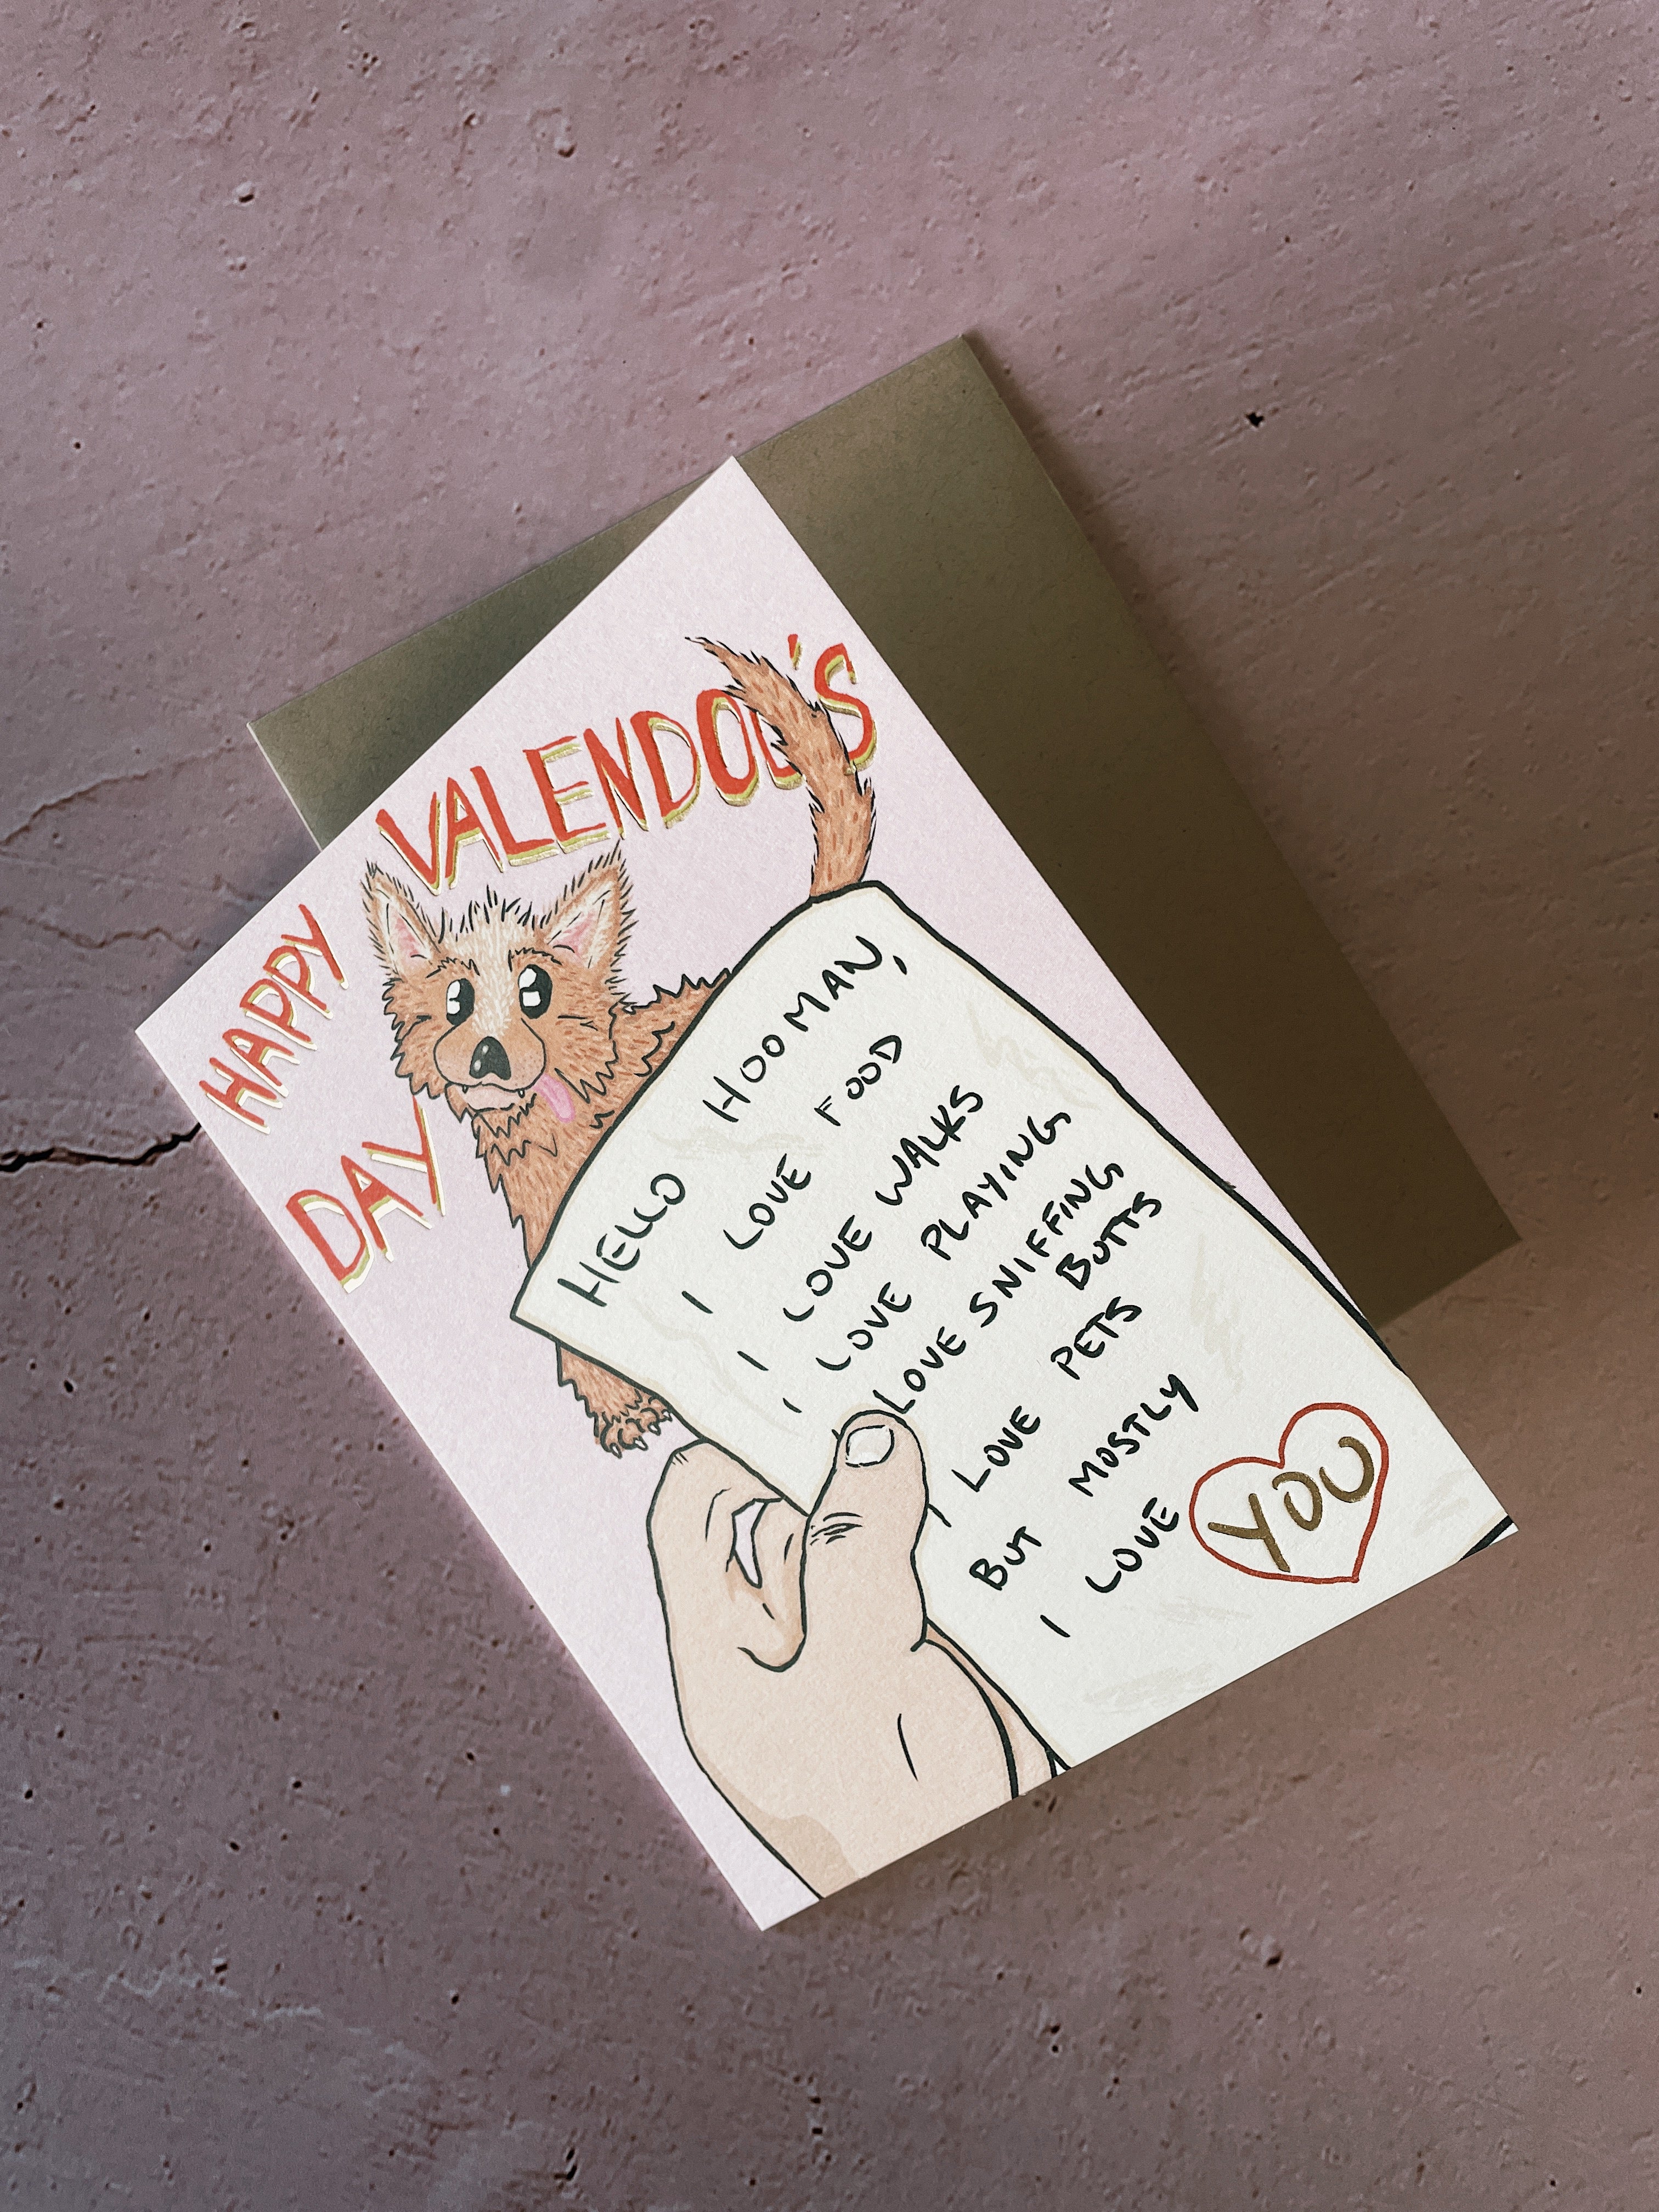 HAPPY
VALENDOG'S
DAY
HELLO HOOMAN,
I LOVE FOOD
I LOVE WALKS
I LOVE PLAYING
LOVE SNIFFING
BUTTS
I LOVE PETS
BUT MOSTLY
I LOVE YOU